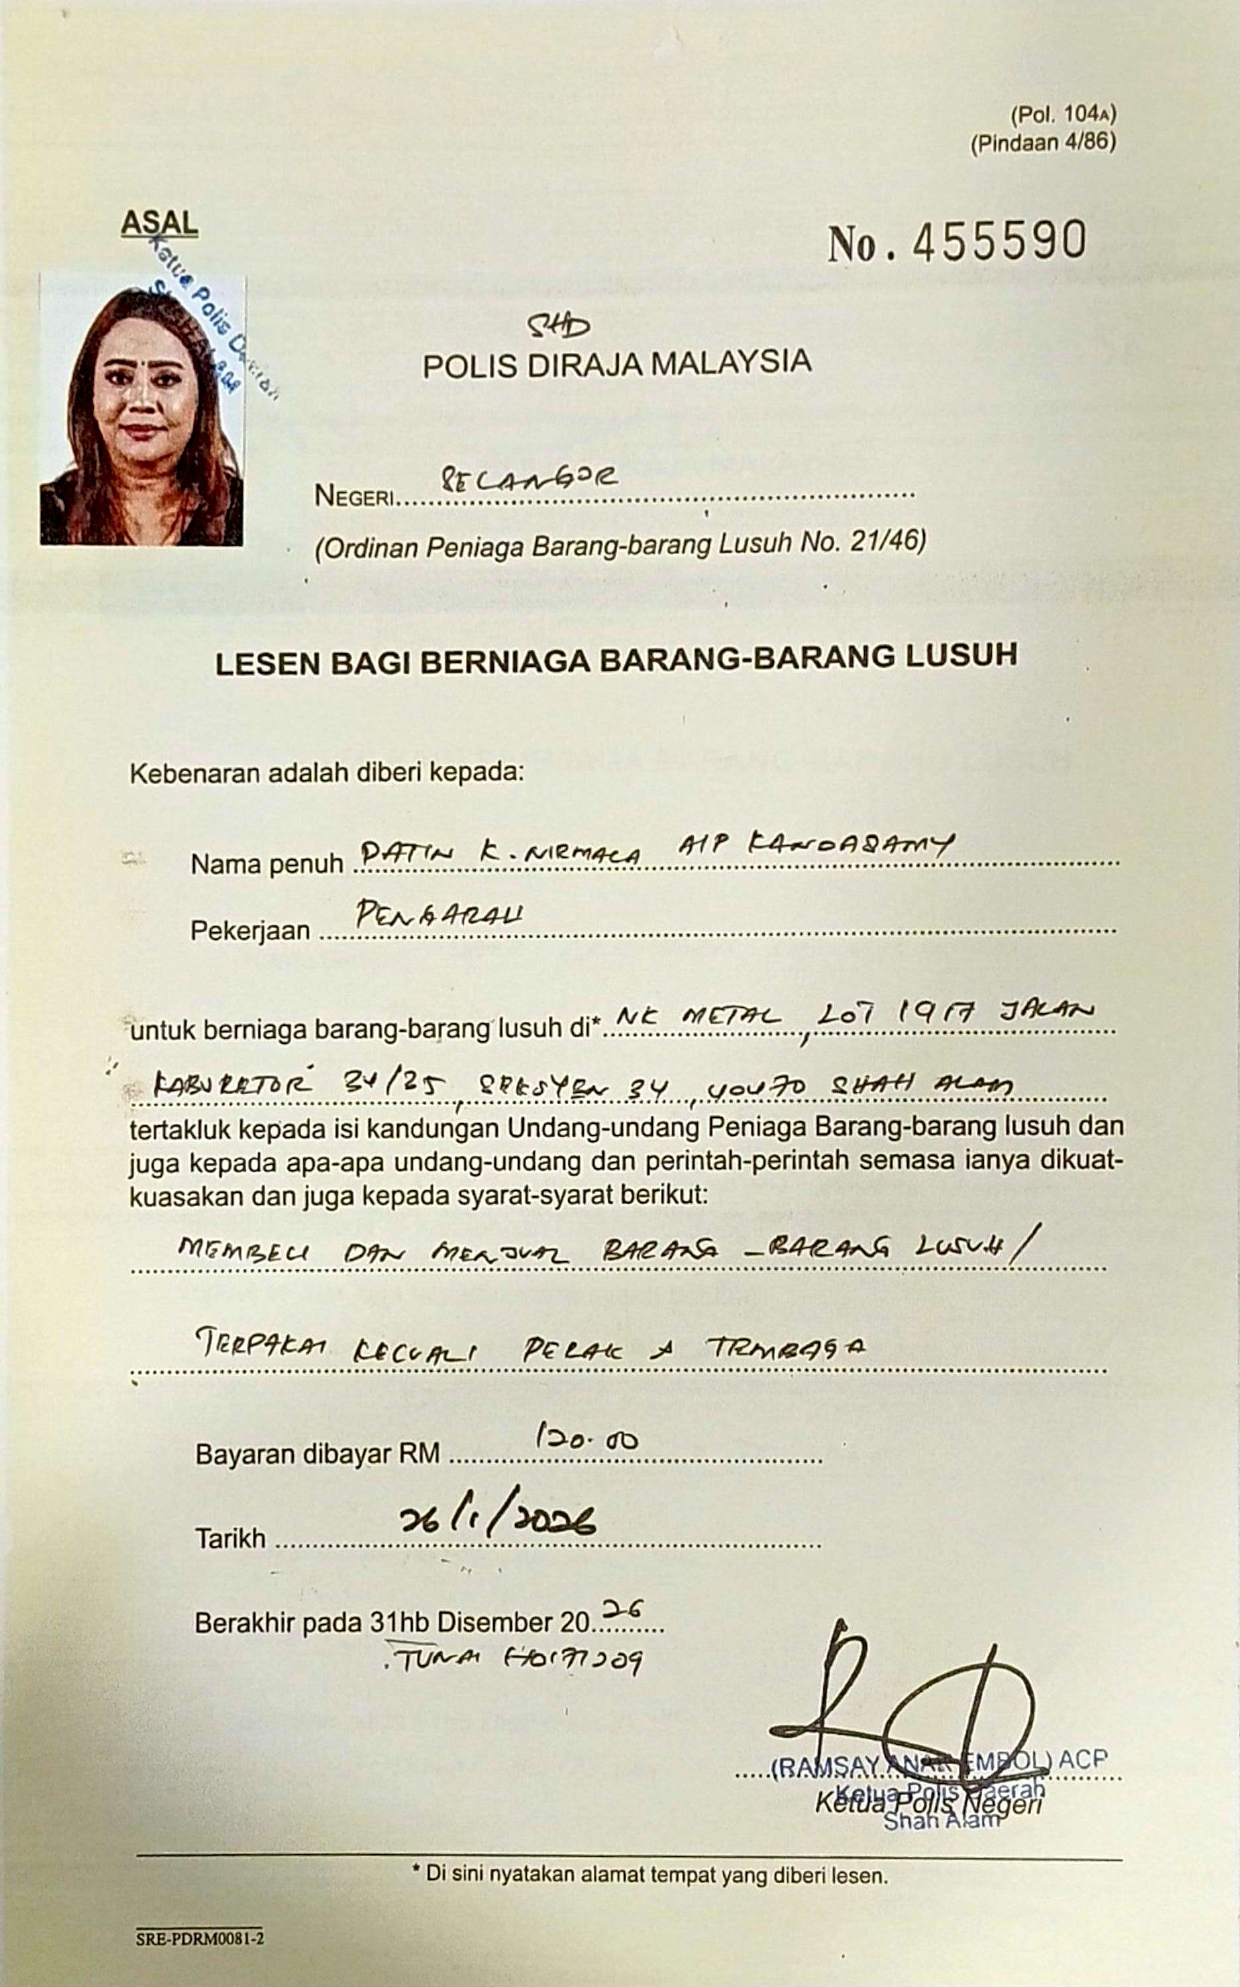 (Pol. 104A)
(Pindaan 4/86)
ASAL
No. 455590
Ketua Polis Daerah
SHD
POLIS DIRAJA MALAYSIA
NEGERI SELANGOR
(Ordinan Peniaga Barang-barang Lusuh No. 21/46)
LESEN BAGI BERNIAGA BARANG-BARANG LUSUH
Kebenaran adalah diberi kepada:
Nama penuh DATIN K. NIRMALA A/P KANDASAMY
Pekerjaan PENGARAH
untuk berniaga barang-barang lusuh di* NK METAL, LOT 1917 JALAN
KABURETOR 34/25, SEKSYEN 34, 40470 SHAH ALAM
tertakluk kepada isi kandungan Undang-undang Peniaga Barang-barang lusuh dan
juga kepada apa-apa undang-undang dan perintah-perintah semasa ianya dikuat-
kuasakan dan juga kepada syarat-syarat berikut:
MEMBELI DAN MENJUAL BARANG-BARANG LUSUH/
TERPAKAI KECUALI PERAK & TEMBAGA
Bayaran dibayar RM 120.00
Tarikh 26/1/2026
Berakhir pada 31hb Disember 2026
TUNAI
(RAMSAY ANAK EMBOL) ACP
Ketua Polis Daerah
Ketua Polis Negeri
Shah Alam
* Di sini nyatakan alamat tempat yang diberi lesen.
SRE-PDRM0081-2